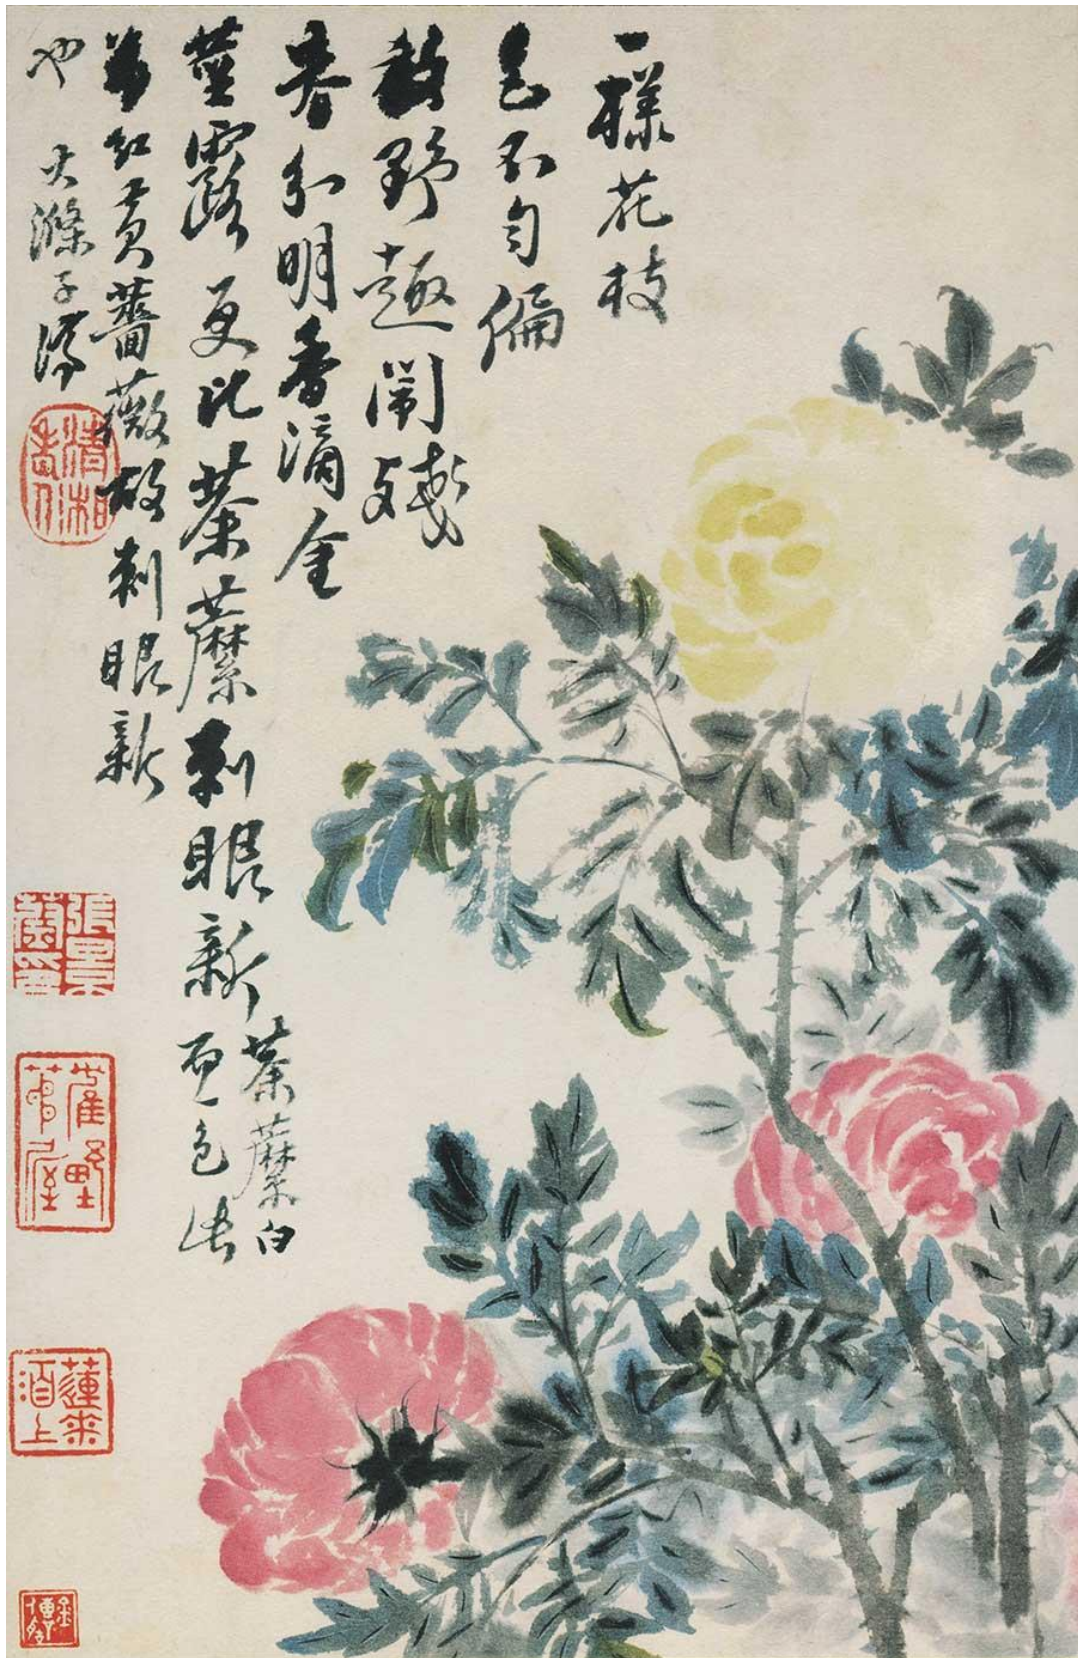 一樣花枝
色不勻偏
教野趣鬧殘
春分明香滴金
莖露更比荼蘼刺眼新
荼蘼白
而一色此
兼紅黃薔薇故刺眼新
也 大滌子濟
清湘老人